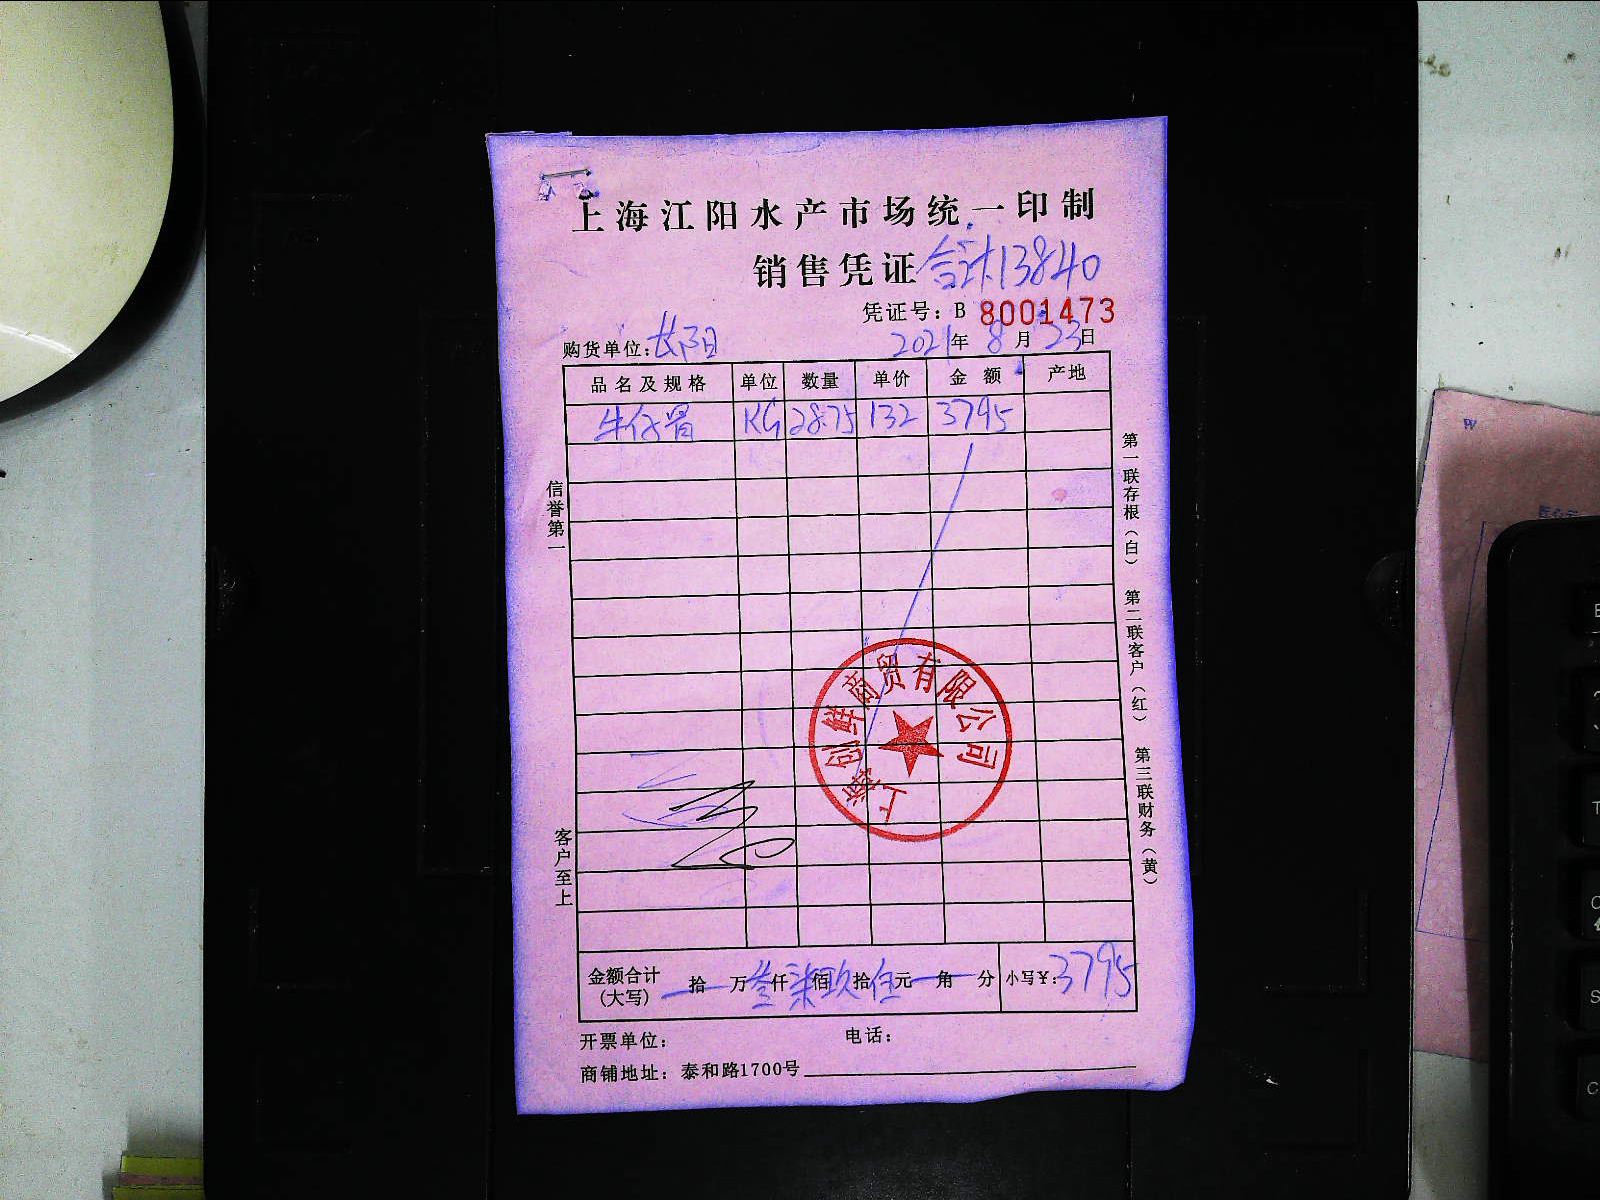 上海江阳水产市场统一印制
销售凭证 合计13840
凭证号：B 8001473
购货单位：长阳 2021年 8月 23日
品名及规格 单位 数量 单价 金额 产地
牛仔骨 KG 28.75 132 3795
信誉第一
客户至上
第一联存根（白） 第二联客户（红） 第三联财务（黄）
上海创鲜商贸有限公司
金额合计（大写） 拾 万 叁仟 柒佰 玖拾 伍元 角 分 小写¥：3795
开票单位： 电话：
商铺地址：泰和路1700号